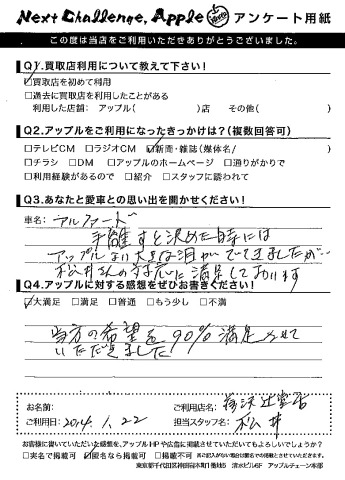 Next Challenge, Apple アンケート用紙
この度は当店をご利用いただきありがとうございました。
Q1.買取店利用について教えて下さい!
☑買取店を初めて利用
□過去に買取店を利用したことがある
利用した店舗: アップル( )店 その他( )
Q2.アップルをご利用になったきっかけは?(複数回答可)
□テレビCM □ラジオCM ☑新聞・雑誌(媒体名/ )
□チラシ □DM □アップルのホームページ □通りがかりで
□利用経験があるので □紹介 □スタッフに誘われて
Q3.あなたと愛車との思い出を聞かせください!
車名: アルファード
手離すと決めた時には
アップルより大きな泪がでてきましたが…
松井さんの対応に満足しております
Q4.アップルに対する感想をぜひお書きください!
☑大満足 □満足 □普通 □もう少し □不満
当方の希望を90%満足させて
いただきました
お名前:
ご利用店名: 藤沢辻堂店
ご利用日: 2014. 1. 22
担当スタッフ名: 松井
お客様に書いていただいた感想を、アップルHPや広告に掲載させていただいてもよろしいでしょうか?
□実名で掲載可 ☑匿名なら掲載可 □掲載不可
※ご記入がない場合は匿名での掲載とさせていただきます。
東京都千代田区神田 清水ビル6F アップルチェーン本部